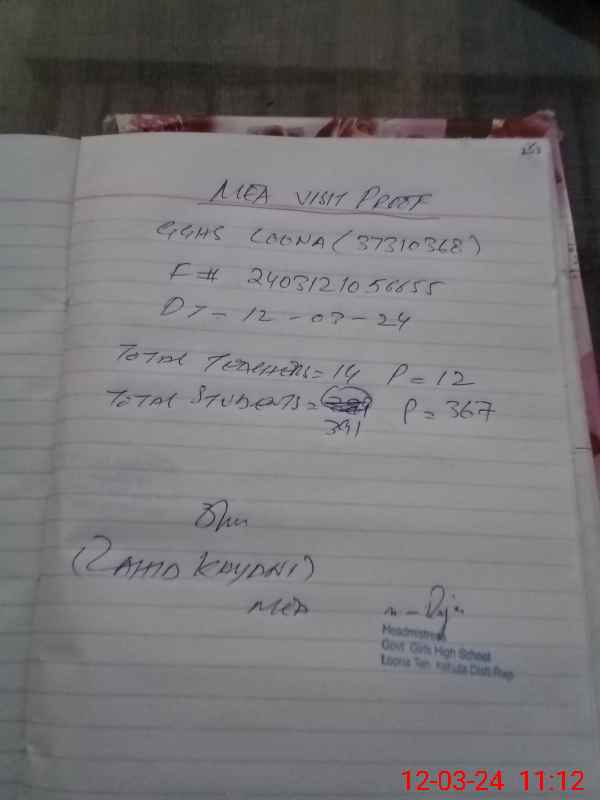 MEA VISIT PROOF
GGHS LOONA (37310368)
F# 2403121056655
DT - 12 - 03 - 24
TOTAL TEACHERS = 14 P = 12
TOTAL STUDENTS = 391 P = 367
(ZAHID KAYANI)
MEA
Headmistress
Govt Girls High School
Loona Teh. Kahuta Distt Rwp
12-03-24 11:12